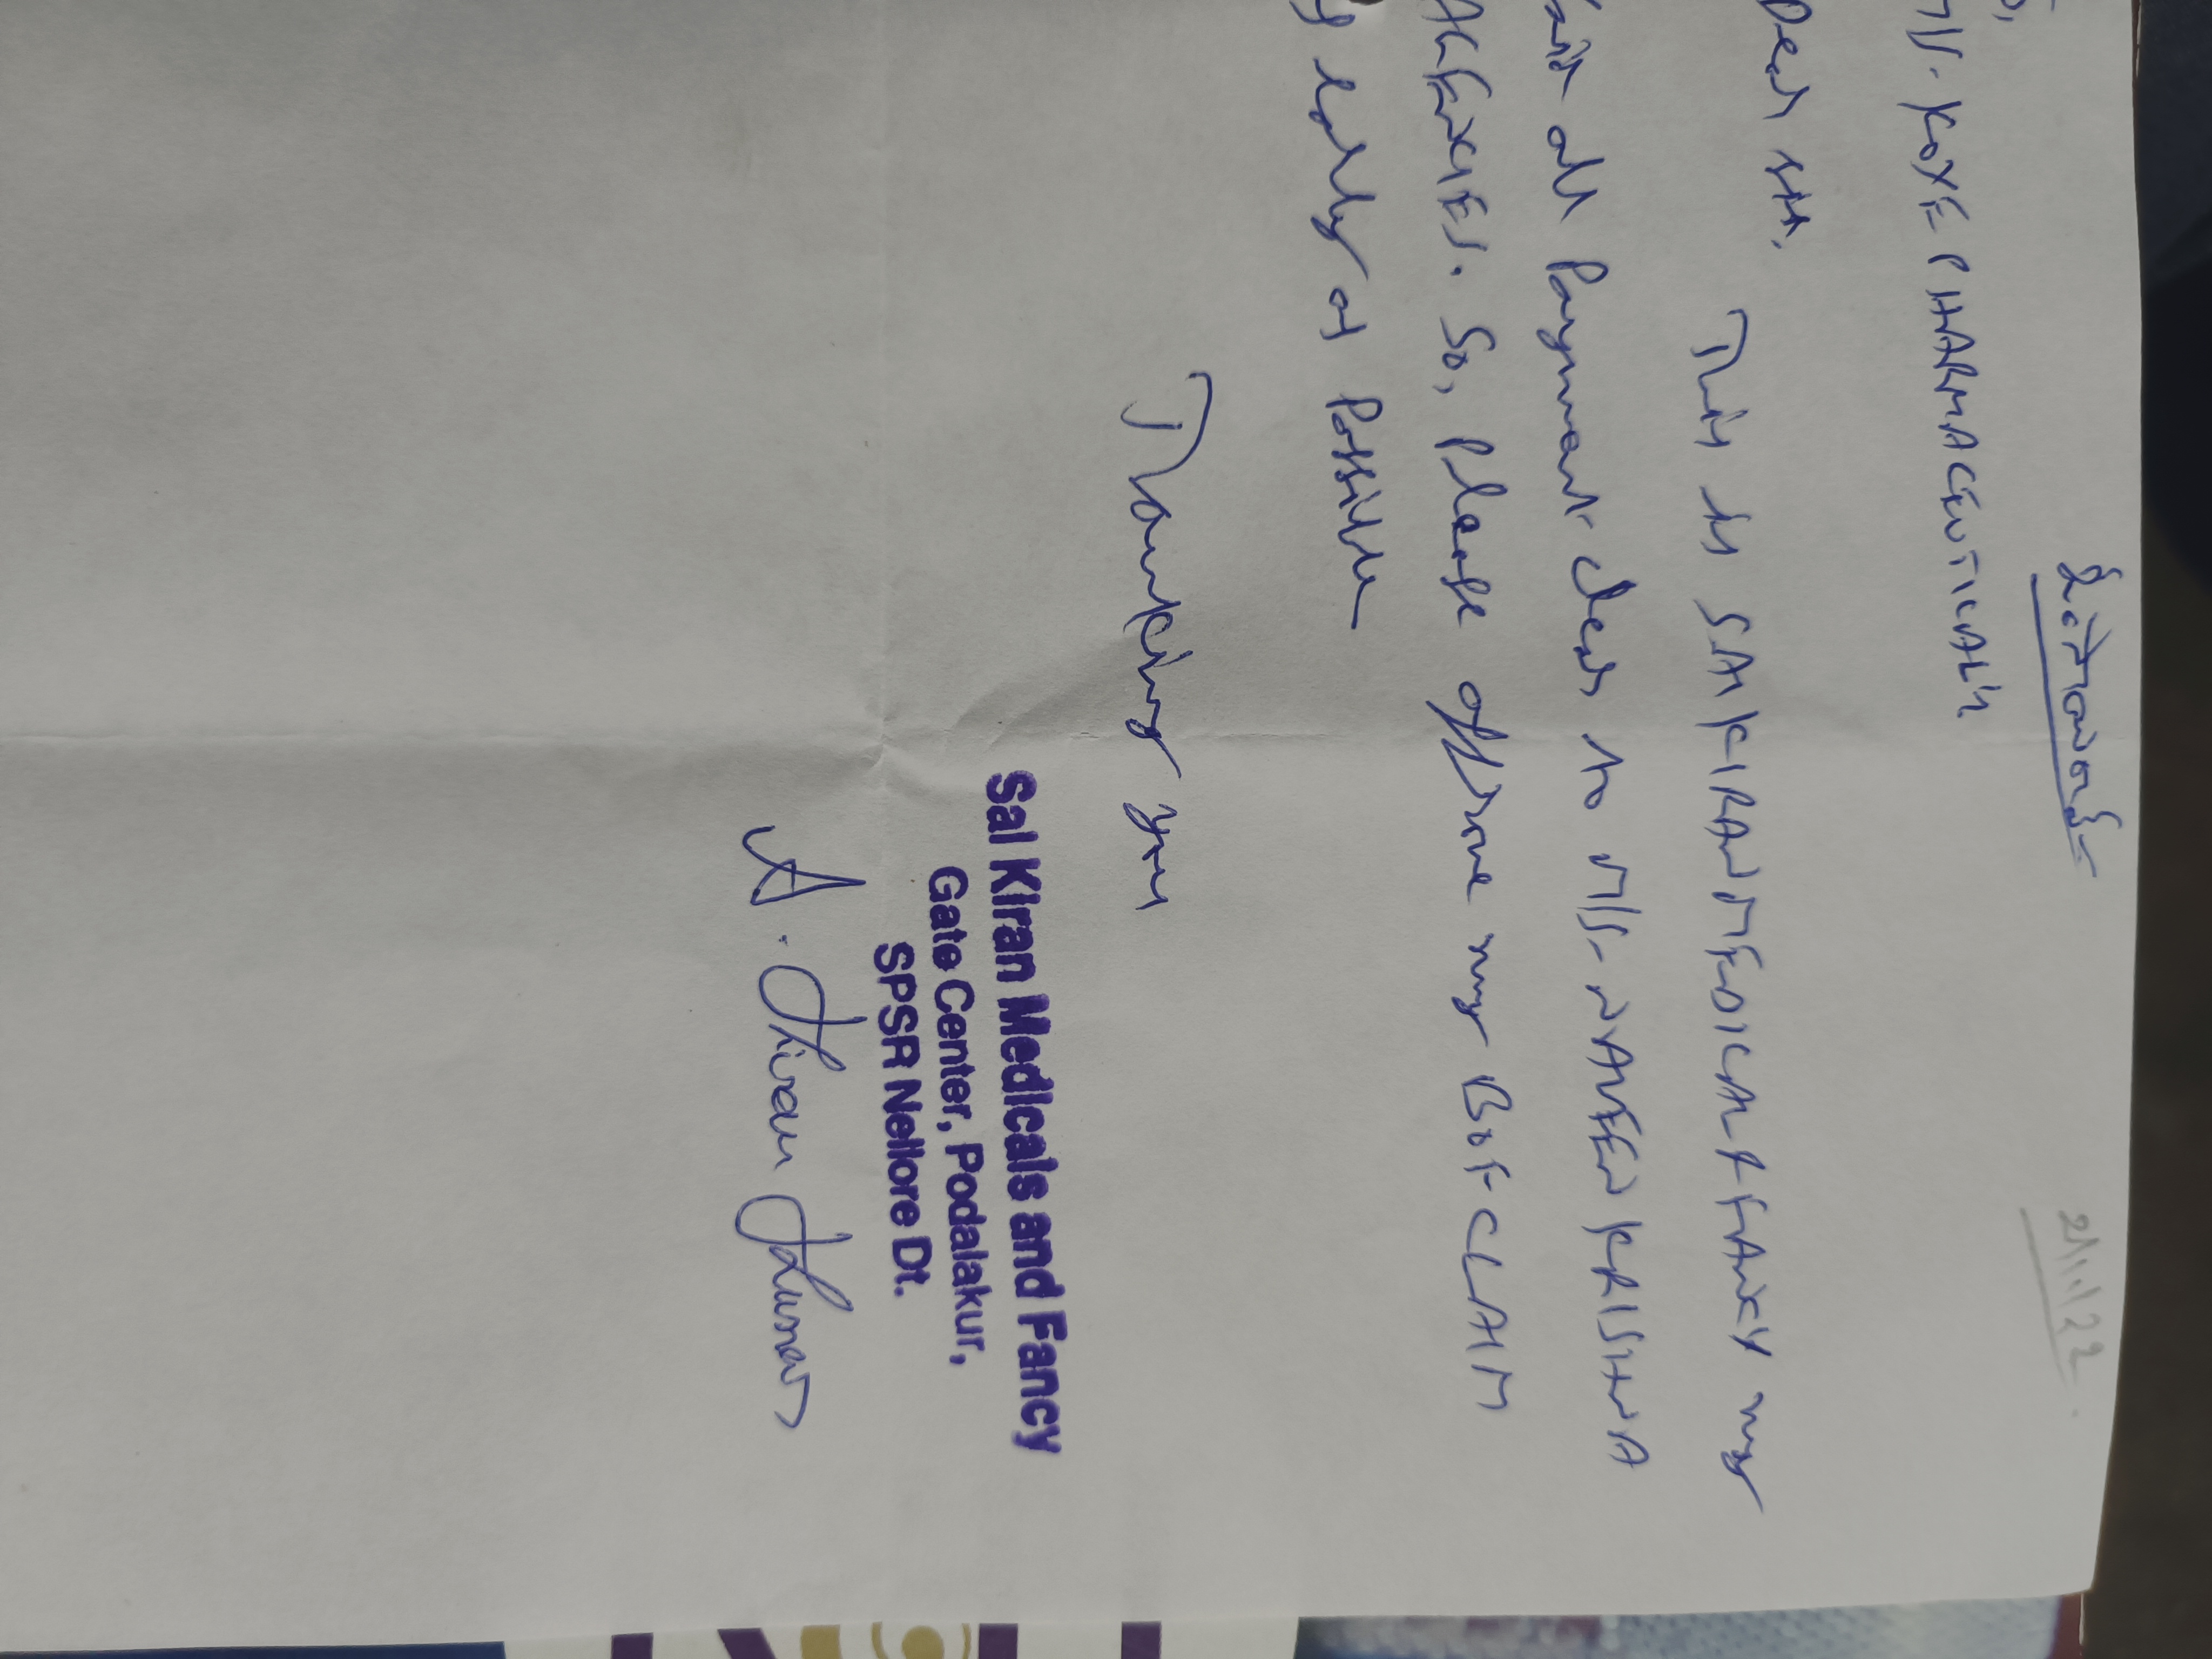 21.1.22
M/S. KOYE PHARMACEUTICALS
Dear sir,
This is SAI KIRAN MEDICAL & FANCY my
all Payment clear to M/S- NAVEEN KRISHNA
AGENCIES. So, Please my B of CLAIM
early as Possible
Thanking you
Sai Kiran Medicals and Fancy
Gate Center, Podalakur,
SPSR Nellore Dt.
A. Kiran Kumar